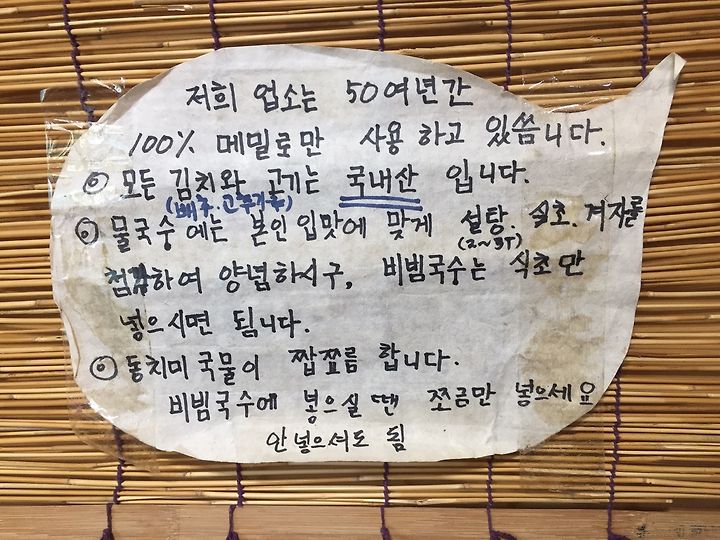 저희 업소는 50여년간
100% 메밀로만 사용 하고 있씀니다.
◎ 모든 김치와 고기는 국내산 입니다.
(배추.고추가루)
◎ 물국수 에는 본인 입맛에 맞게 설탕. 식초. 겨자를
(2~3T)
첨가하여 양념하시구, 비빔국수는 식초만
넣으시면 됩니다.
◎ 동치미 국물이 짭쪼름 합니다.
비빔국수에 넣으실 땐 쪼금만 넣으세요
안 넣으셔도 됨